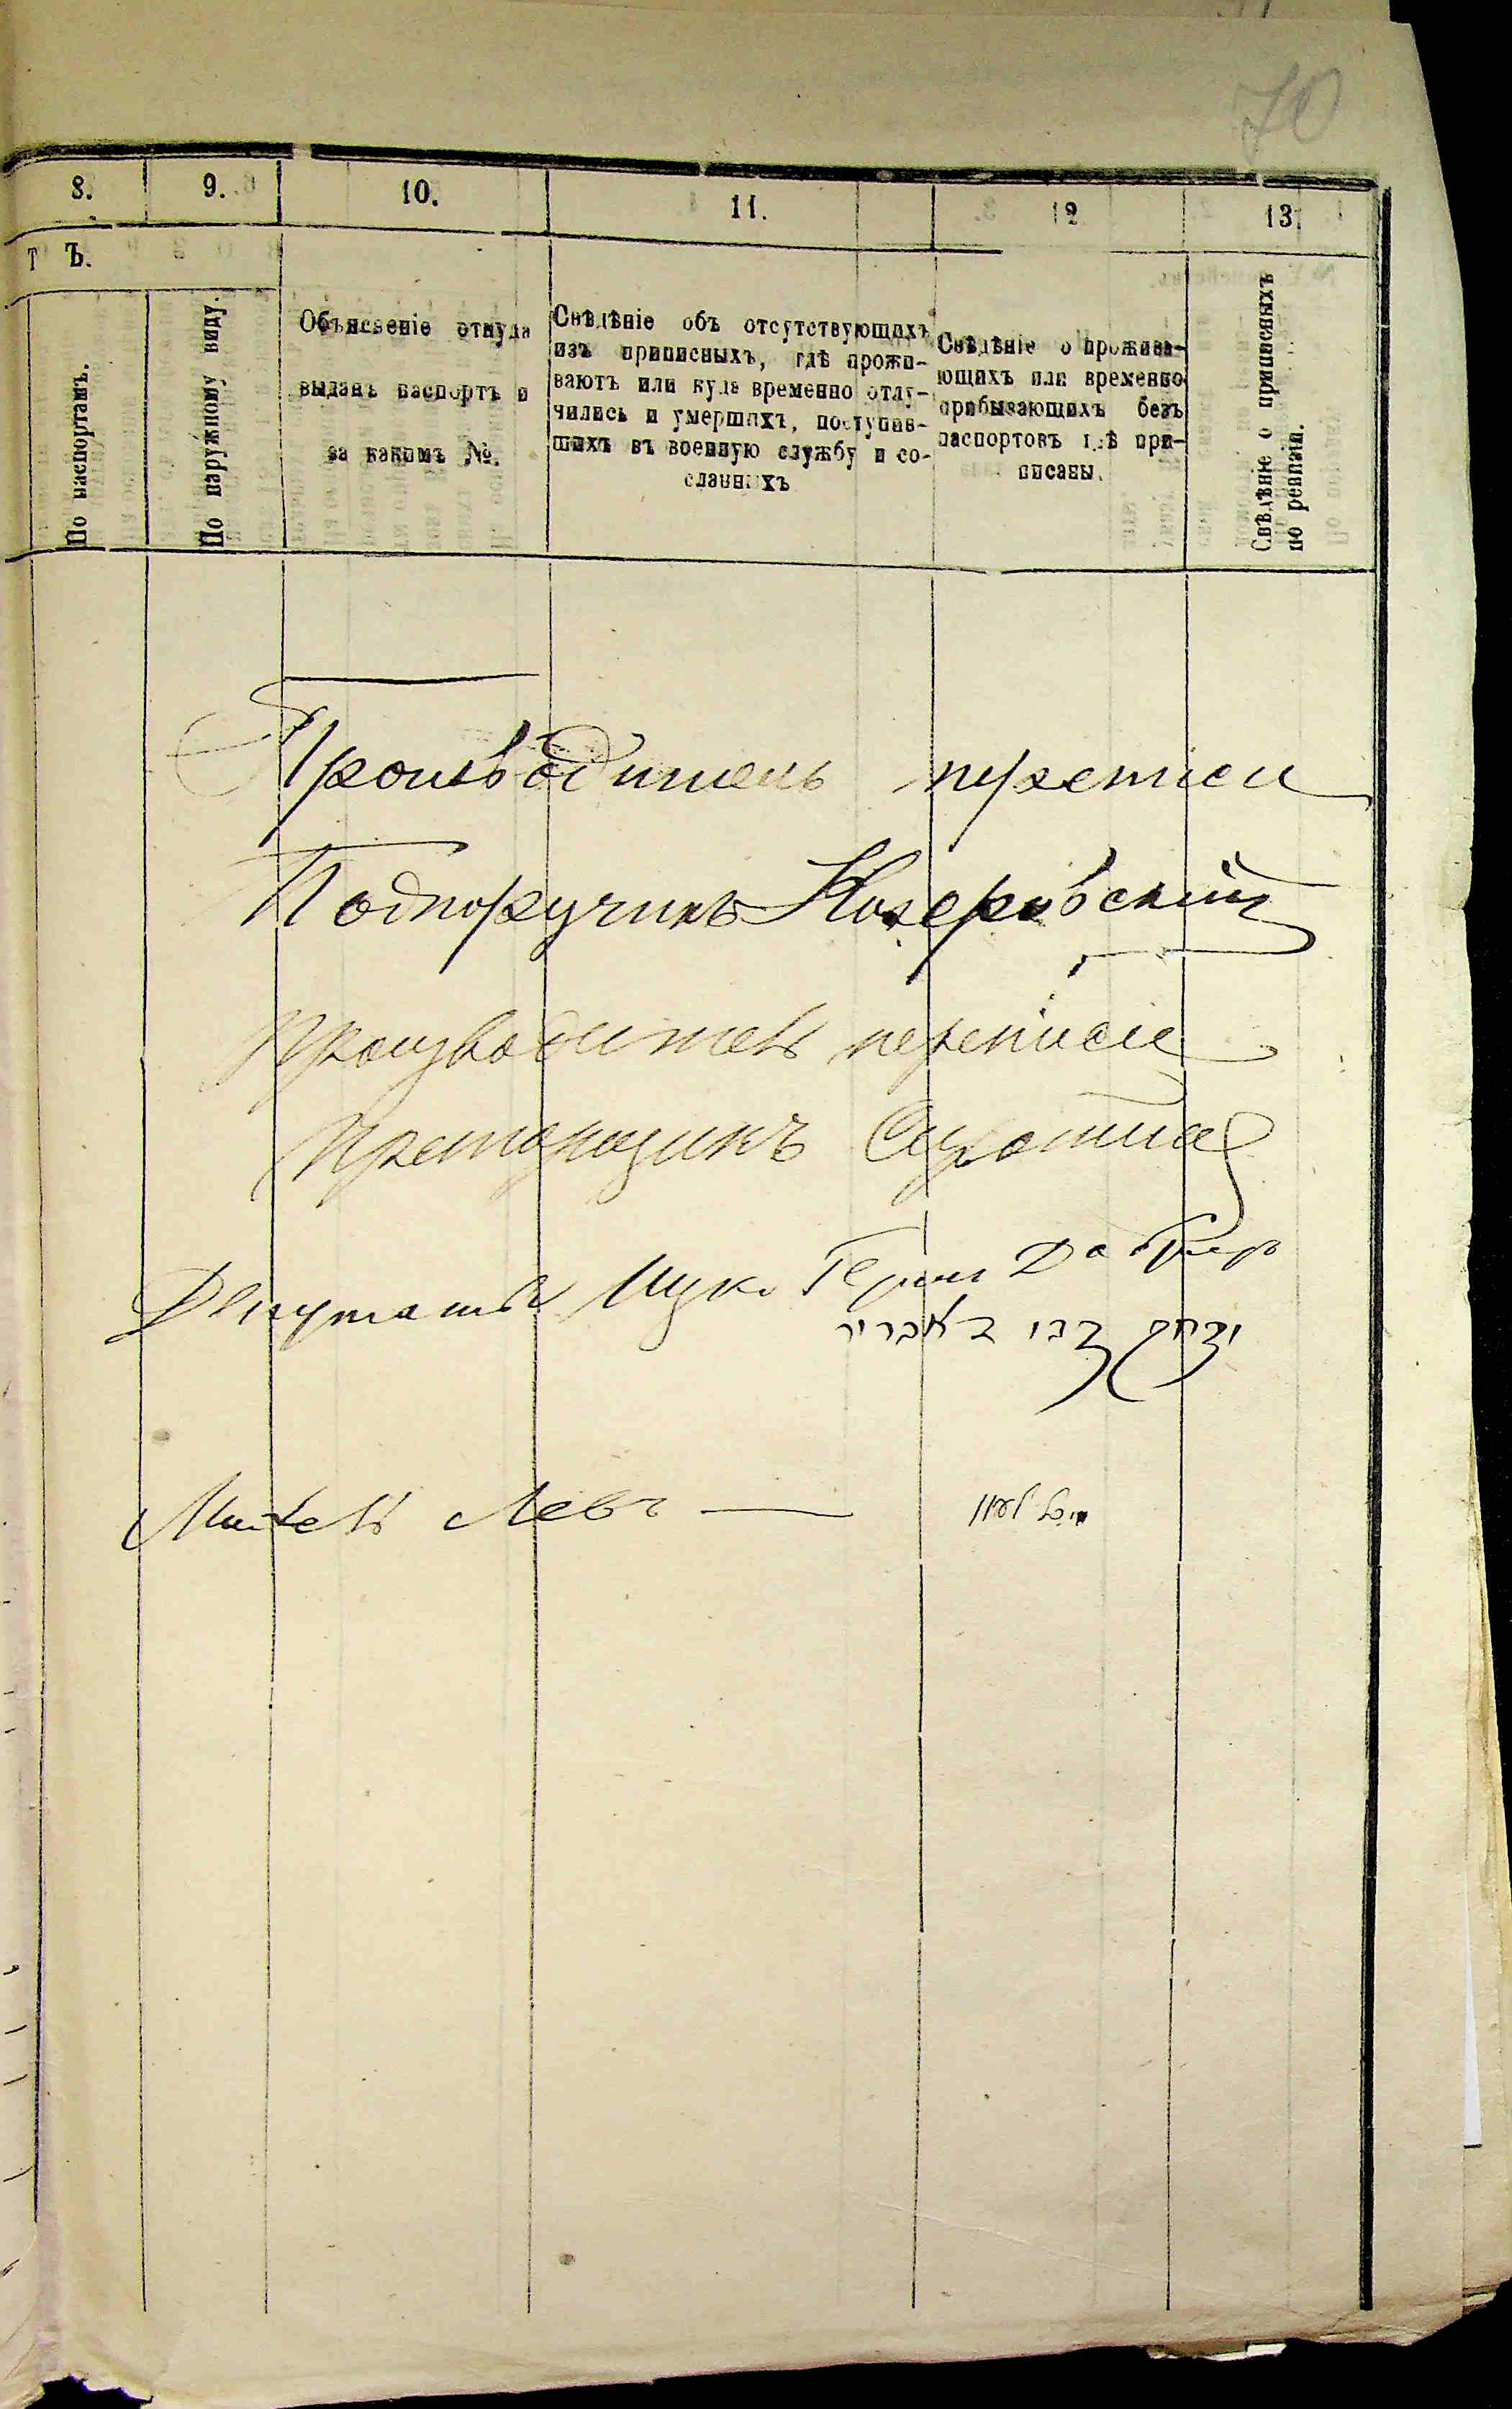 70
8. 9. 10. 11. 12 13.
т Ъ.
По паспортамъ.
По наружному виду.
Объясвеніе откуда
выданъ паспортъ и
за какимъ №.
Свѣдѣніе объ отсутствующихъ
изъ приписныхъ, гдѣ прожи-
ваютъ или куда временно отлу-
чились и умершихъ, поступив-
шихъ въ военную службу и со-
сланныхъ
Свѣдѣніе о прожива-
ющихъ или временно
прибывающихъ безъ
паспортовъ гдѣ при-
писаны.
Свѣдѣніе о приписныхъ
по ревизіи.
Производитель переписи
Подпоручикъ Козеровскій
Производитель переписи
Прапорщикъ Сиротин
Депутаты Ицко
יצחק צבי
Михель Левъ